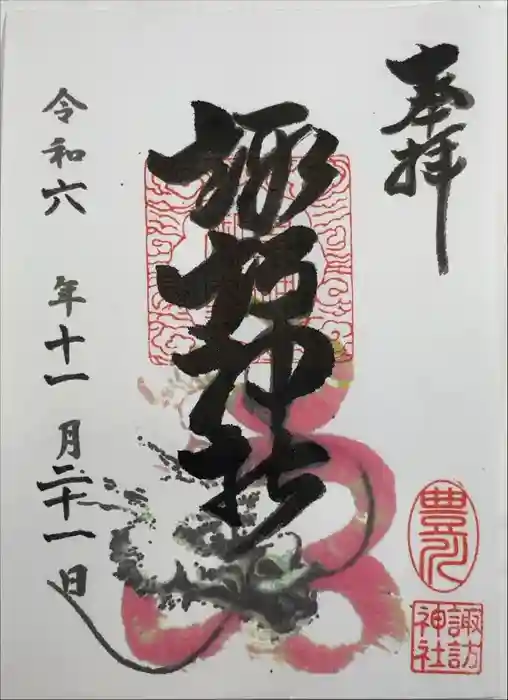 奉拝
諏訪神社
令和六年十一月二十一日
豊川
諏訪
神社